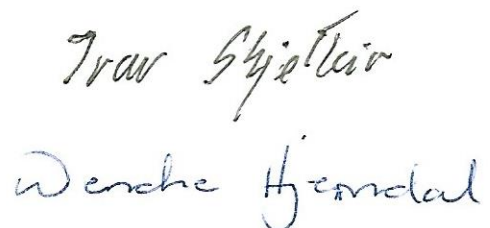 Ivar Skjetkin
Wenche Hjemdal